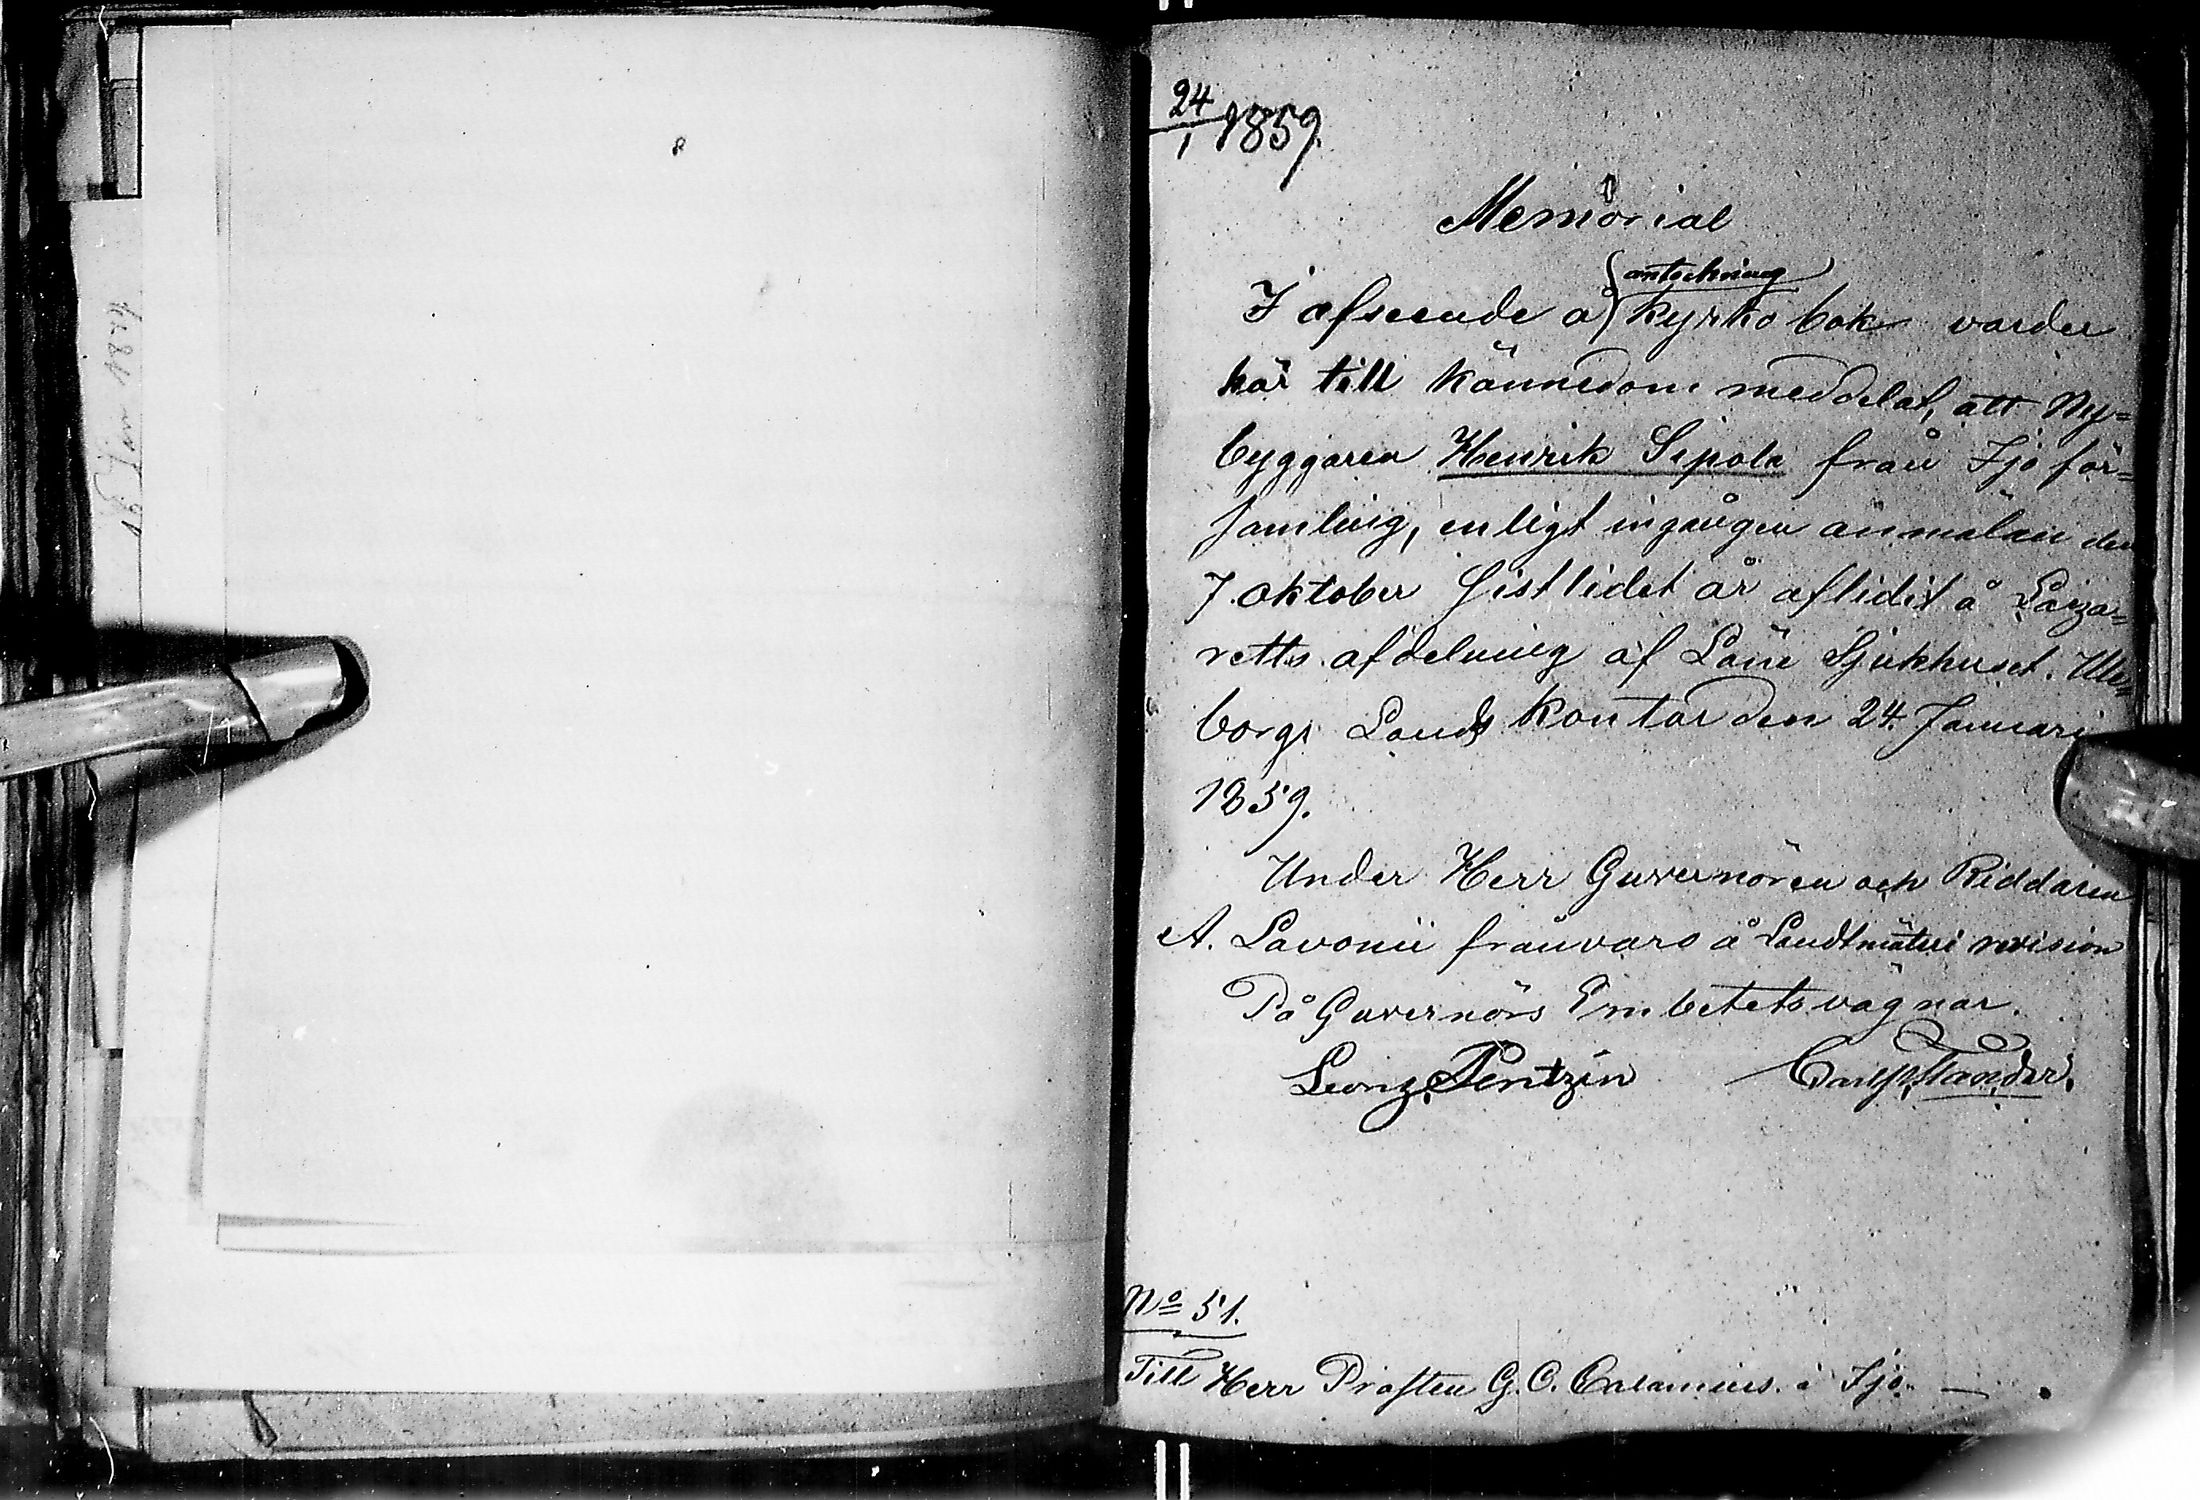 24/1 1859.
Memorial
antekning
I afseende å kyrko bok varder
här till kännedom meddelat, att Ny=
byggaren Henrik Sipola från Ijo för=
samling, enligt ingången anmälan den
7 Oktober sistlidet år aflidit å Laza=
retts afdelning af Läne Sjukhuset. Uleå
borgs Lands kontor den 24 Januari
1859.
Under Herr Guvernören och Riddaren
A. Lavonii frånvaro å Landtmäteri revision
På Guvernörs Embetets vägnar.
Pentzin
No 51.
Till Herr Prosten G. C. Calamnius i Ijo.